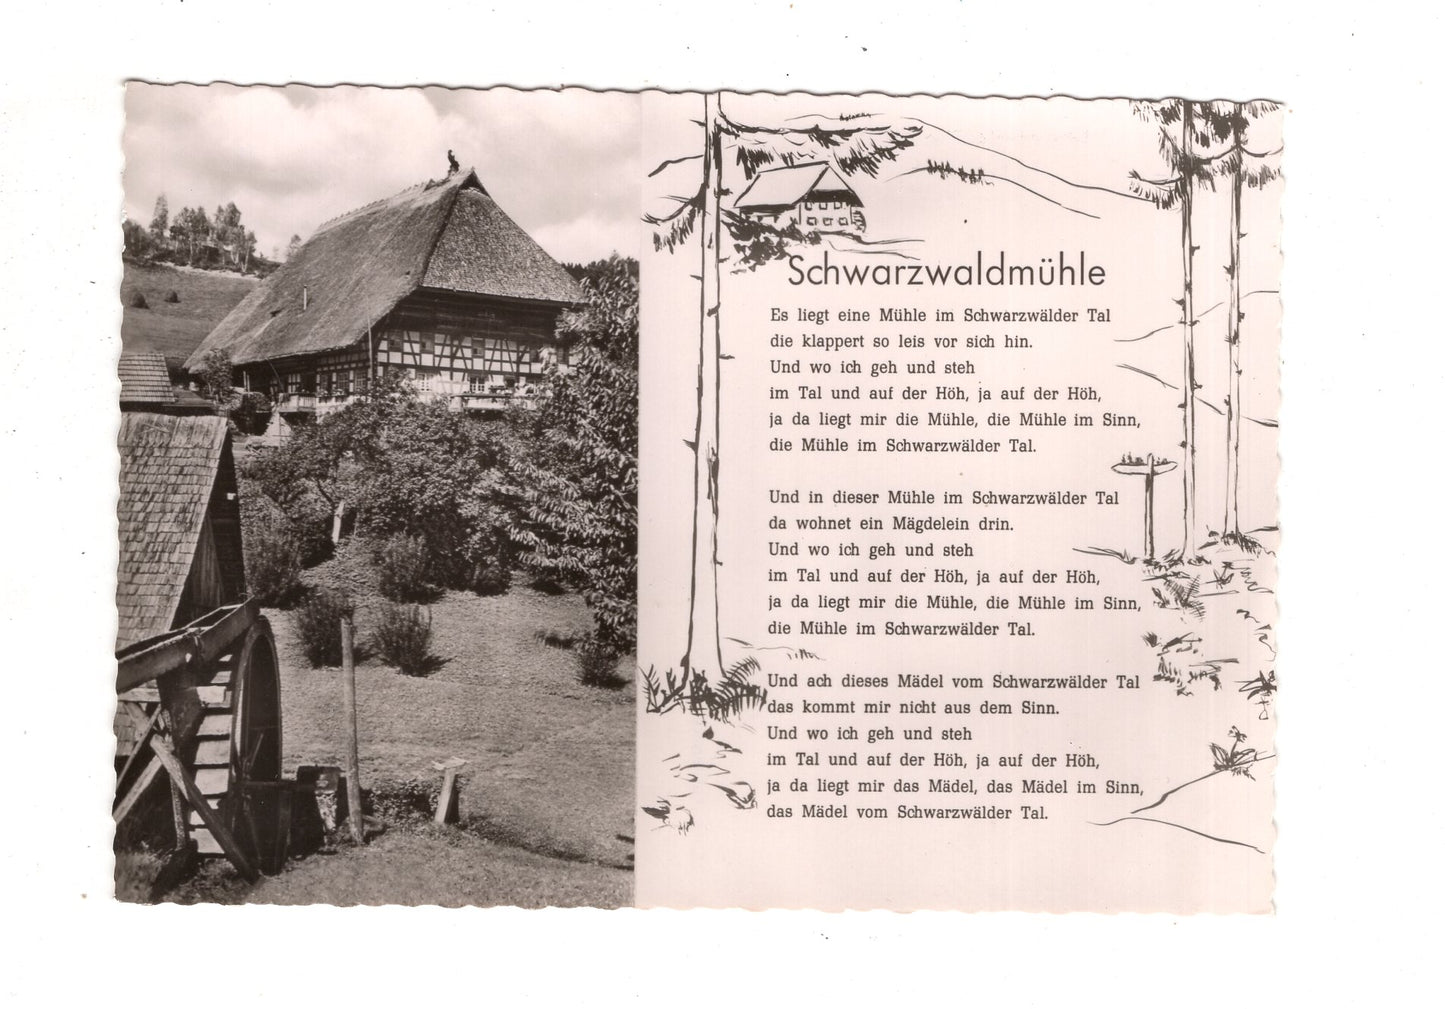 Schwarzwaldmühle
Es liegt eine Mühle im Schwarzwälder Tal
die klappert so leis vor sich hin.
Und wo ich geh und steh
im Tal und auf der Höh, ja auf der Höh,
ja da liegt mir die Mühle, die Mühle im Sinn,
die Mühle im Schwarzwälder Tal.
Und in dieser Mühle im Schwarzwälder Tal
da wohnet ein Mägdelein drin.
Und wo ich geh und steh
im Tal und auf der Höh, ja auf der Höh,
ja da liegt mir die Mühle, die Mühle im Sinn,
die Mühle im Schwarzwälder Tal.
Und ach dieses Mädel vom Schwarzwälder Tal
das kommt mir nicht aus dem Sinn.
Und wo ich geh und steh
im Tal und auf der Höh, ja auf der Höh,
ja da liegt mir das Mädel, das Mädel im Sinn,
das Mädel vom Schwarzwälder Tal.